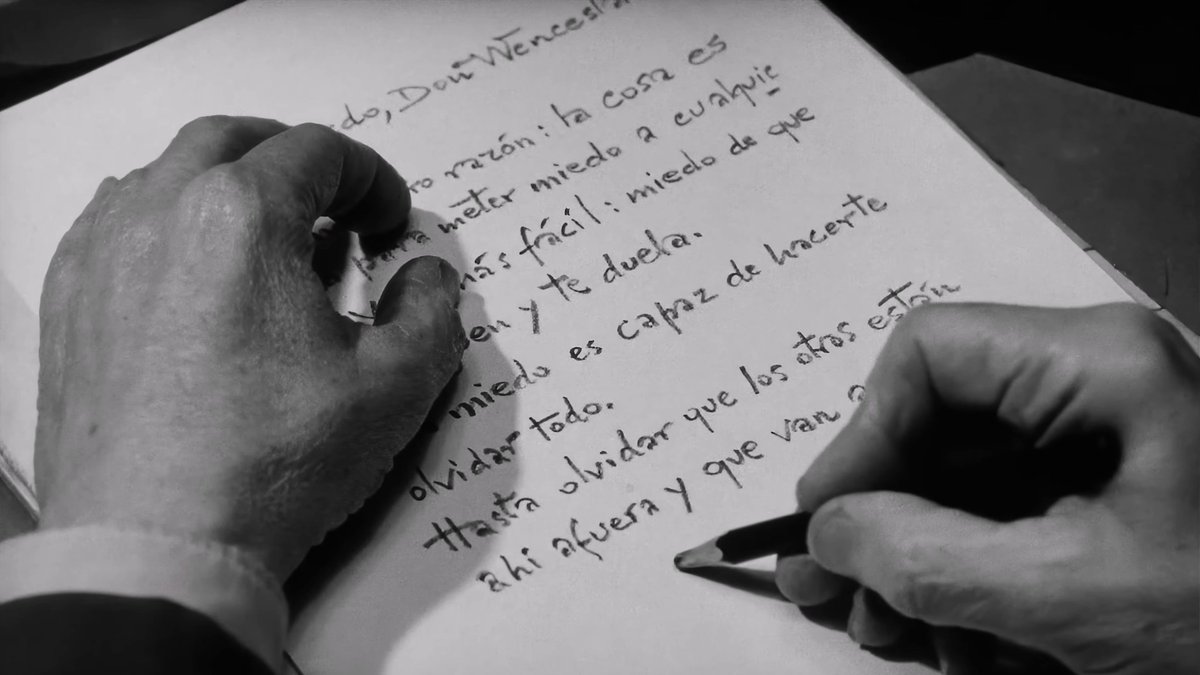 Don
razón: la cosa es
para meter miedo a
más fácil: miedo de que
y te duela.
miedo es capaz de hacerte
olvidar todo.
Hasta olvidar que los otros están
ahi afuera y que van